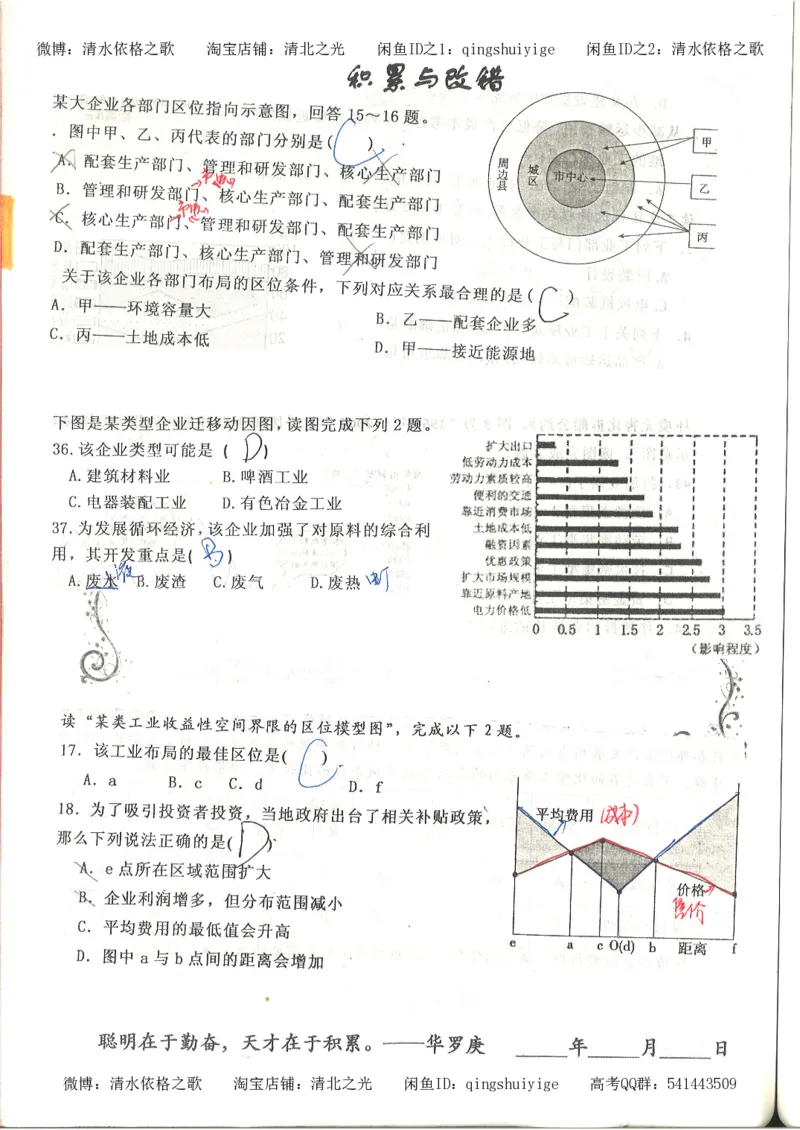 微博：清水依格之歌 淘宝店铺：清北之光 闲鱼ID之1：qingshuiyige 闲鱼ID之2：清水依格之歌
积累与改错
某大企业各部门区位指向示意图，回答15～16题。
．图中甲、乙、丙代表的部门分别是( C )
A．配套生产部门、管理和研发部门、核心生产部门
市中心
B．管理和研发部门、核心生产部门、配套生产部门
市中心
C．核心生产部门、管理和研发部门、配套生产部门
D．配套生产部门、核心生产部门、管理和研发部门
周边县 城区 市中心 甲 乙 丙
关于该企业各部门布局的区位条件，下列对应关系最合理的是( C )
A．甲——环境容量大 B．乙——配套企业多
C．丙——土地成本低 D．甲——接近能源地
下图是某类型企业迁移动因图，读图完成下列2题。
36.该企业类型可能是 ( D )
A.建筑材料业 B.啤酒工业
C.电器装配工业 D.有色冶金工业
37.为发展循环经济，该企业加强了对原料的综合利
用，其开发重点是( B )
液
A.废水 B.废渣 C.废气 D.废热
扩大出口
低劳动力成本
劳动力素质较高
便利的交通
靠近消费市场
土地成本低
融资因素
优惠政策
扩大市场规模
靠近原料产地
电力价格低
0 0.5 1 1.5 2 2.5 3 3.5
（影响程度）
读“某类工业收益性空间界限的区位模型图”，完成以下2题。
17．该工业布局的最佳区位是( C )
A．a B．c C．d D．f
18．为了吸引投资者投资，当地政府出台了相关补贴政策，
那么下列说法正确的是( D )
A．e点所在区域范围扩大
B．企业利润增多，但分布范围减小
C．平均费用的最低值会升高
D．图中a与b点间的距离会增加
平均费用 (成本)
价格
售价
e a c O(d) b 距离 f
聪明在于勤奋，天才在于积累。——华罗庚 _____年_____月_____日
微博：清水依格之歌 淘宝店铺：清北之光 闲鱼ID：qingshuiyige 高考QQ群：541443509